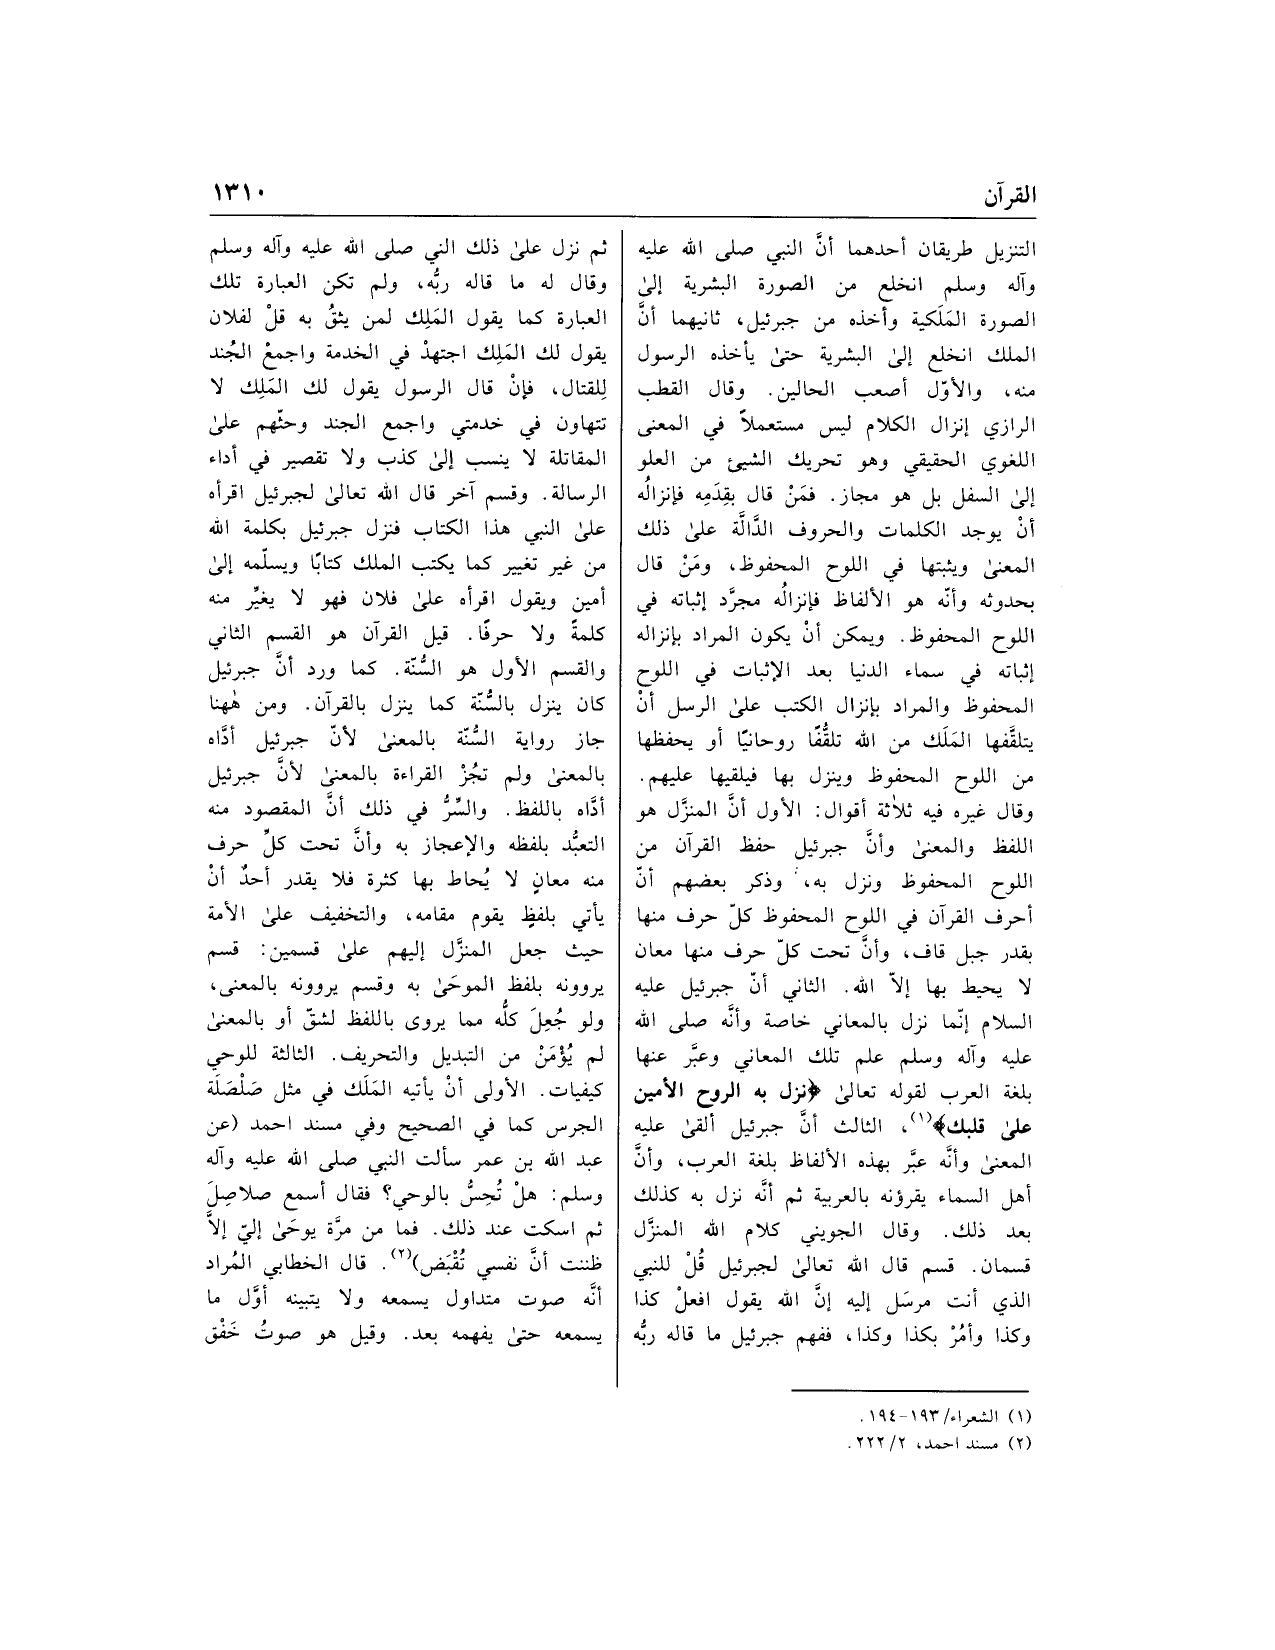 القرآن
١٣١٠
التنزيل طريقان أحدهما أنَّ النبي صلى الله عليه
وآله وسلم انخلع من الصورة البشرية إلىٰ
الصورة المَلَكية وأخذه من جبرئيل، ثانيهما أنَّ
الملك انخلع إلىٰ البشرية حتىٰ يأخذه الرسول
منه، والأوّل أصعب الحالين. وقال القطب
الرازي إنزال الكلام ليس مستعملاً في المعنى
اللغوي الحقيقي وهو تحريك الشيئ من العلو
إلىٰ السفل بل هو مجاز. فمَنْ قال بقِدَمِه فإنزالُه
أنْ يوجد الكلمات والحروف الدَّالَّة علىٰ ذلك
المعنىٰ ويثبتها في اللوح المحفوظ، ومَنْ قال
بحدوثه وأنّه هو الألفاظ فإنزالُه مجرَّد إثباته في
اللوح المحفوظ. ويمكن أنْ يكون المراد بإنزاله
إثباته في سماء الدنيا بعد الإثبات في اللوح
المحفوظ والمراد بإنزال الكتب علىٰ الرسل أنْ
يتلقَّفها المَلَك من الله تلقُّفًا روحانيًا أو يحفظها
من اللوح المحفوظ وينزل بها فيلقيها عليهم.
وقال غيره فيه ثلاثة أقوال: الأول أنَّ المنزَّل هو
اللفظ والمعنىٰ وأنَّ جبرئيل حفظ القرآن من
اللوح المحفوظ ونزل به، وذكر بعضهم أنّ
أحرف القرآن في اللوح المحفوظ كلّ حرف منها
بقدر جبل قاف، وأنَّ تحت كلّ حرف منها معان
لا يحيط بها إلاّ الله. الثاني أنّ جبرئيل عليه
السلام إنّما نزل بالمعاني خاصة وأنَّه صلى الله
عليه وآله وسلم علم تلك المعاني وعبَّر عنها
بلغة العرب لقوله تعالىٰ ﴿نزل به الروح الأمين
علىٰ قلبك﴾(١)، الثالث أنَّ جبرئيل ألقىٰ عليه
المعنىٰ وأنَّه عبَّر بهذه الألفاظ بلغة العرب، وأنَّ
أهل السماء يقرؤنه بالعربية ثم أنَّه نزل به كذلك
بعد ذلك. وقال الجويني كلام الله المنزَّل
قسمان. قسم قال الله تعالىٰ لجبرئيل قُلْ للنبي
الذي أنت مرسَل إليه إنَّ الله يقول افعلْ كذا
وكذا وأمُرْ بكذا وكذا، ففهم جبرئيل ما قاله ربُّه
ثم نزل علىٰ ذلك النبي صلى الله عليه وآله وسلم
وقال له ما قاله ربُّه، ولم تكن العبارة تلك
العبارة كما يقول المَلِك لمن يثقُ به قلْ لفلان
يقول لك المَلِك اجتهدْ في الخدمة واجمعْ الجُند
لِلقتال، فإنْ قال الرسول يقول لك المَلِك لا
تتهاون في خدمتي واجمع الجند وحثّهم علىٰ
المقاتلة لا ينسب إلىٰ كذب ولا تقصير في أداء
الرسالة. وقسم آخر قال الله تعالىٰ لجبرئيل اقرأه
علىٰ النبي هذا الكتاب فنزل جبرئيل بكلمة الله
من غير تغيير كما يكتب الملك كتابًا ويسلّمه إلىٰ
أمين ويقول اقرأه علىٰ فلان فهو لا يغيِّر منه
كلمةً ولا حرفًا. قيل القرآن هو القسم الثاني
والقسم الأول هو السُّنّة. كما ورد أنَّ جبرئيل
كان ينزل بالسُّنّة كما ينزل بالقرآن. ومن هٰهنا
جاز رواية السُّنّة بالمعنىٰ لأنّ جبرئيل أدَّاه
بالمعنىٰ ولم تجُزْ القراءة بالمعنىٰ لأنَّ جبرئيل
أدَّاه باللفظ. والسِّرُّ في ذلك أنَّ المقصود منه
التعبُّد بلفظه والإعجاز به وأنَّ تحت كلِّ حرف
منه معانٍ لا يُحاط بها كثرة فلا يقدر أحدٌ أنْ
يأتي بلفظٍ يقوم مقامه، والتخفيف علىٰ الأمة
حيث جعل المنزَّل إليهم علىٰ قسمين: قسم
يروونه بلفظ الموحَىٰ به وقسم يروونه بالمعنى،
ولو جُعِلَ كلُّه مما يروى باللفظ لشقّ أو بالمعنىٰ
لم يُؤمَنْ من التبديل والتحريف. الثالثة للوحي
كيفيات. الأولى أنْ يأتيه المَلَك في مثل صَلْصَلَة
الجرس كما في الصحيح وفي مسند احمد (عن
عبد الله بن عمر سألت النبي صلى الله عليه وآله
وسلم: هلْ تُحِسُّ بالوحي؟ فقال أسمع صلاصِلَ
ثم اسكت عند ذلك. فما من مرَّة يوحَىٰ إليّ إلاَّ
ظننت أنَّ نفسي تُقْبَض)(٢). قال الخطابي المُراد
أنَّه صوت متداول يسمعه ولا يتبينه أوَّل ما
يسمعه حتىٰ يفهمه بعد. وقيل هو صوتُ خَفْق
(١) الشعراء/١٩٣-١٩٤.
(٢) مسند احمد، ٢/٢٢٢.